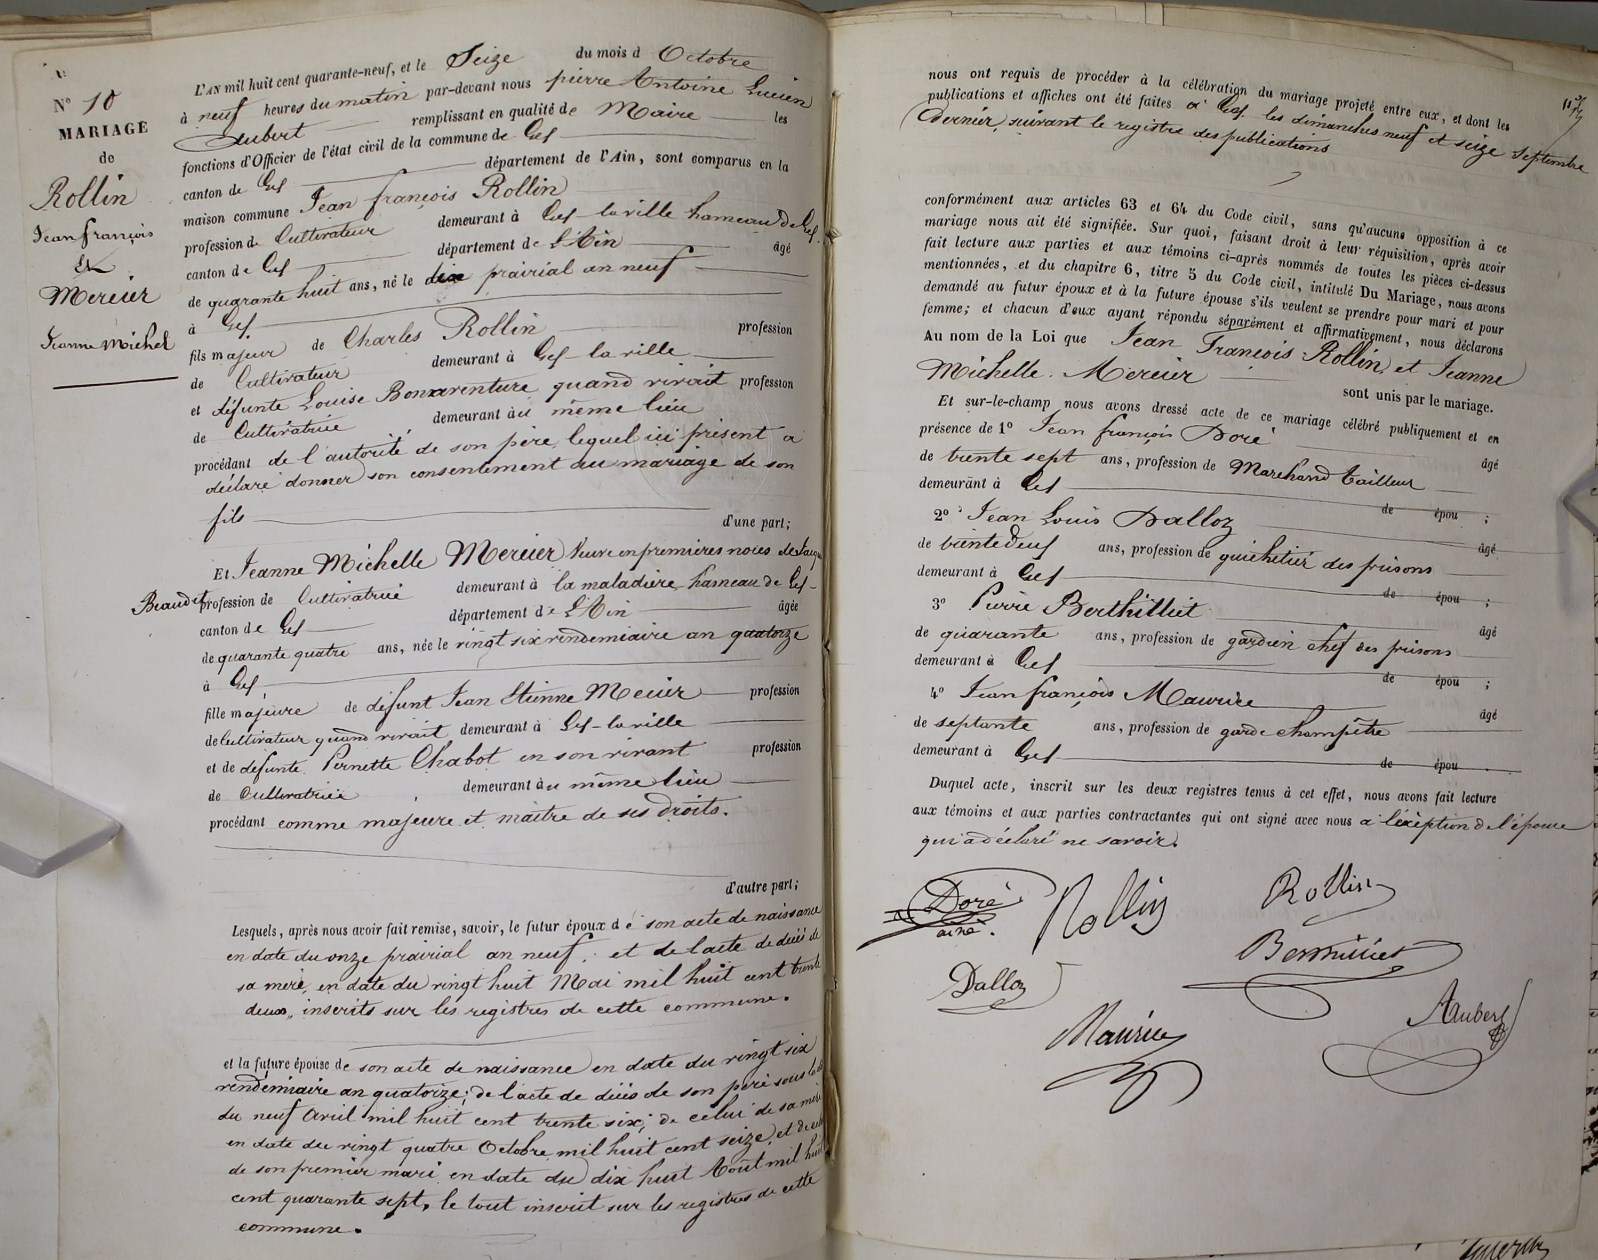 N° 10
MARIAGE
de
Rollin
Jean françois
&
Mercier
Jeanne Michel
L'AN mil huit cent quarante-neuf, et le Seize du mois d Octobre
à neuf heures du matin par-devant nous pierre Antoine Lucien
Aubert remplissant en qualité de Maire les
fonctions d'Officier de l'état civil de la commune de Gex
canton de Gex département de l'Ain, sont comparus en la
maison commune Jean françois Rollin
profession de Cultivateur demeurant à Gex-la-ville hameau de Gex.
canton de Gex département de L'Ain âgé
de quarante huit ans, né le dix prairial an neuf
à Gex
fils majeur de Charles Rollin profession
de Cultivateur demeurant à Gex-la-ville
et défunte Louise Bonaventure quand vivait profession
de Cultivatrice demeurant au même lieu
procédant de l'autorité de son père lequel ici présent a
déclaré donner son consentement au mariage de son
fils d'une part;
Et Jeanne Michelle Mercier Veuve en premières noces de Jacques
Beaudet profession de Cultivatrice demeurant à la maladière hameau de Gex-
canton de Gex département de L'Ain âgée
de quarante quatre ans, née le vingt six vendémiaire an quatorze
à Gex
fille majeure de défunt Jean Etienne Mecier profession
de Cultivateur quand vivait demeurant à Gex-la-ville
et de défunte Pernette Chabot en son vivant profession
de Cultivatrice demeurant au même lieu
procédant comme majeure et maître de ses droits.
d'autre part;
Lesquels, après nous avoir fait remise, savoir, le futur époux de son acte de naissance
en date du onze prairial an neuf; et de l'acte de décès de
sa mère, en date du vingt huit Mai mil huit cent trente
deux, inscrits sur les registres de cette commune.
et la future épouse de son acte de naissance en date du vingt six
vendémiaire an quatorze; de l'acte de décès de son père sous la
du neuf avril mil huit cent trente six; de celui de sa mère
en date du vingt quatre Octobre mil huit cent seize, et de
de son premier mari en date du dix huit Août mil huit
cent quarante sept, le tout inscrit sur les registres de cette
commune.
nous ont requis de procéder à la célébration du mariage projeté entre eux, et dont les
publications et affiches ont été faites à Gex les dimanches neuf et seize Septembre
Dernier, suivant le registre des publications
conformément aux articles 63 et 64 du Code civil, sans qu'aucune opposition à ce
mariage nous ait été signifiée. Sur quoi, faisant droit à leur réquisition, après avoir
fait lecture aux parties et aux témoins ci-après nommés de toutes les pièces ci-dessus
mentionnées, et du chapitre 6, titre 5 du Code civil, intitulé Du Mariage, nous avons
demandé au futur époux et à la future épouse s'ils veulent se prendre pour mari et pour
femme; et chacun d'eux ayant répondu séparément et affirmativement, nous déclarons
Au nom de la Loi que Jean François Rollin et Jeanne
Michelle Mercier sont unis par le mariage.
Et sur-le-champ nous avons dressé acte de ce mariage célébré publiquement et en
présence de 1° Jean françois Doré âgé
de trente sept ans, profession de Marchand tailleur
demeurant à Gex de épou ;
2° Jean Louis Dalloz âgé
de trente deux ans, profession de guichetier des prisons
demeurant à Gex de épou ;
3° Pierre Berthilliet âgé
de quarante ans, profession de gardien chef des prisons
demeurant à Gex de épou ;
4° Jean françois Maurice âgé
de septante ans, profession de garde champêtre
demeurant à Gex de épou .
Duquel acte, inscrit sur les deux registres tenus à cet effet, nous avons fait lecture
aux témoins et aux parties contractantes qui ont signé avec nous à l'exeption de l'épouse
qui a déclaré ne savoir.
Doré
ainé.
Rollin
Rollin
Berthilliet
Dalloz
Maurice
Aubert